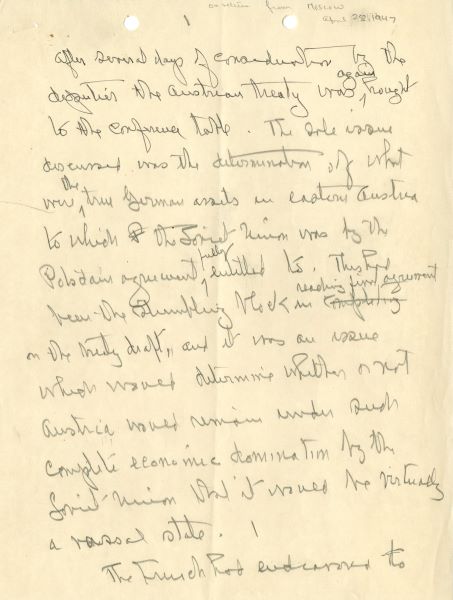 1
on return from Moscow
April 28, 1947
After several days of consideration by the
deputies the Austrian treaty was again brought
to the conference table. The sole issue
discussed was the determination of what
were the true German assets in eastern Austria
to which the Soviet Union was by the
Potsdam agreement fully entitled to. This had
been the stumbling block in reaching final agreement
on the treaty draft, and it was an issue
which would determine whether or not
Austria would remain under such
complete economic domination by the
Soviet Union that it would be virtually
a vassal state.
The French had endeavored to